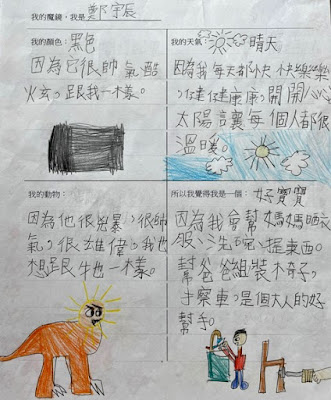 我的魔鏡,我是 鄭宇辰
我的顏色:黑色
因為它很帥氣、酷
炫,跟我一樣。
我的天氣:晴天
因為我每天都快快樂樂
,健健康康,開開心心
太陽讓每個人都很
溫暖。
我的動物:
因為他很兇暴,很帥
氣,很雄偉,我也
想跟牛也一樣。
所以我覺得我是一個: 好寶寶
因為我會幫媽媽晒衣
服、洗碗、提東西。
幫爸爸組裝木奇子,
擦車,是個大人的好
幫手。